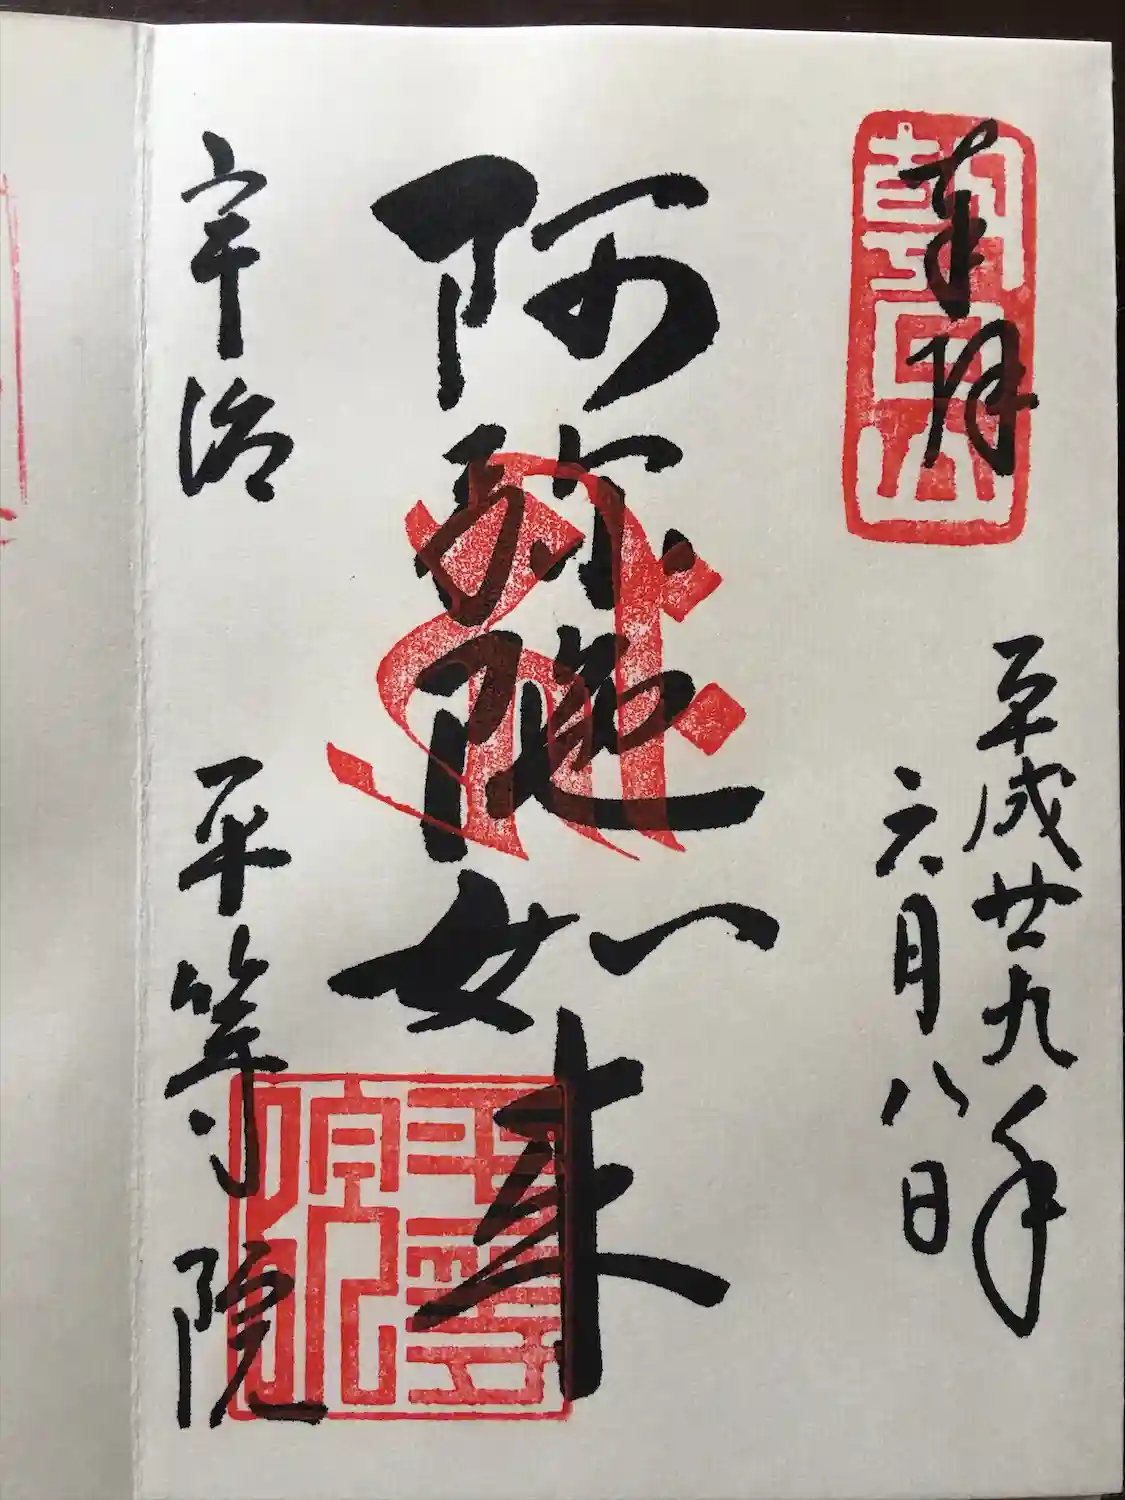 奉拝
朝日山
平成廿九年
六月八日
阿弥陀如来
宇治
平等院
平等院